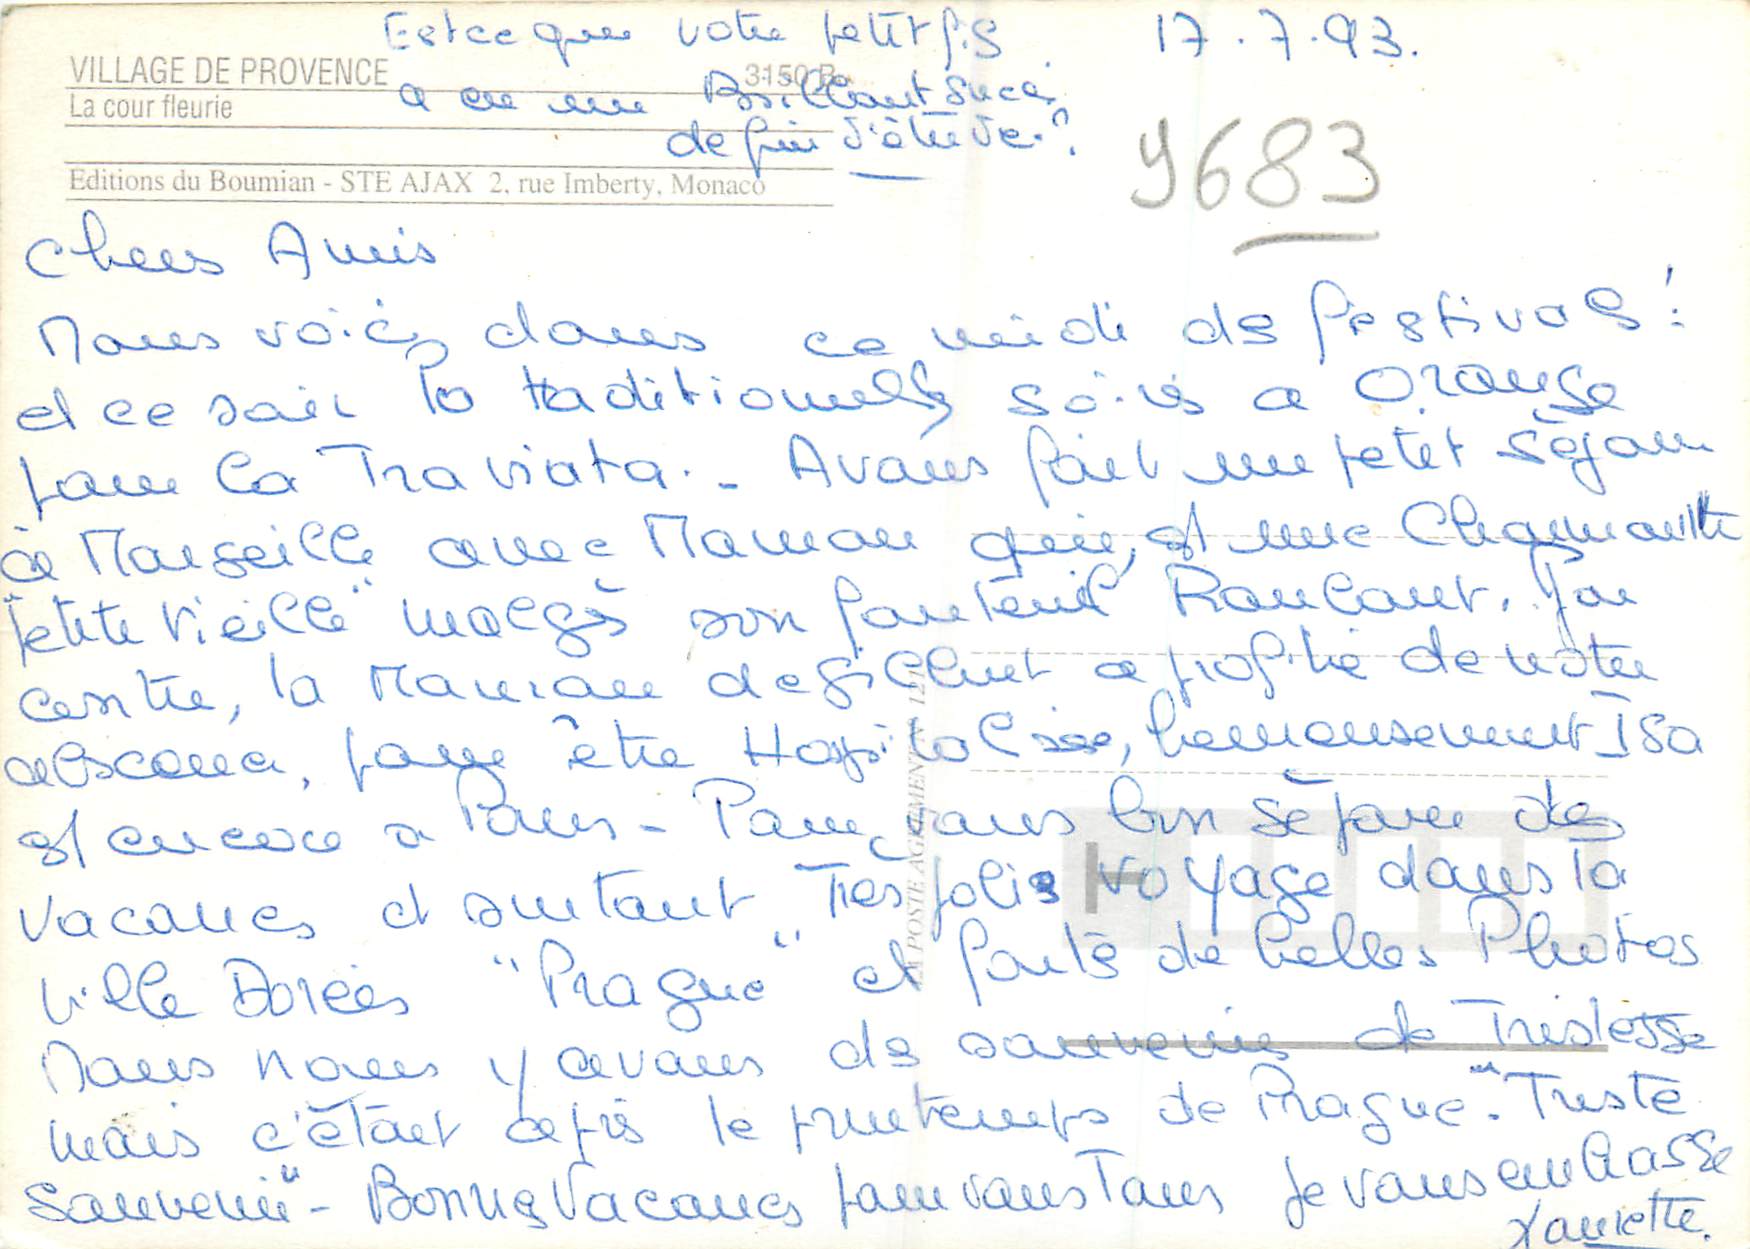 Est ce que votre petit fils
17.7.93.
VILLAGE DE PROVENCE
3150 B
a eu un Brillant succès
La cour fleurie
de fin d'étude ?
9683
Editions du Boumian - STE AJAX 2, rue Imberty, Monaco
Chers Amis
Nous voici dans ce midi des festivals !
et ce soir la traditionnelle soirée a Orange
pour La Traviata. - Avons fait un petit séjour
à Marseille avec Maman qui est une Charmante
"petite vieille" malgré son fauteuil Roulant. Par
contre, la Maman de Gilbert a profité de notre
absence, pour être Hospitalisée, heureusement Isa
est encore a Paris - Pour vous bon séjour des
vacances et surtout Très jolis voyage dans la
ville Dorées "Prague" et faite de belles Photos
Nous nous y avons des souvenirs de Tristesse
mais c'était après le printemps de Prague. "Triste
souvenir" - Bonnes Vacances pour vous Tous Je vous embrasse
LA POSTE AGREMENT N° 121